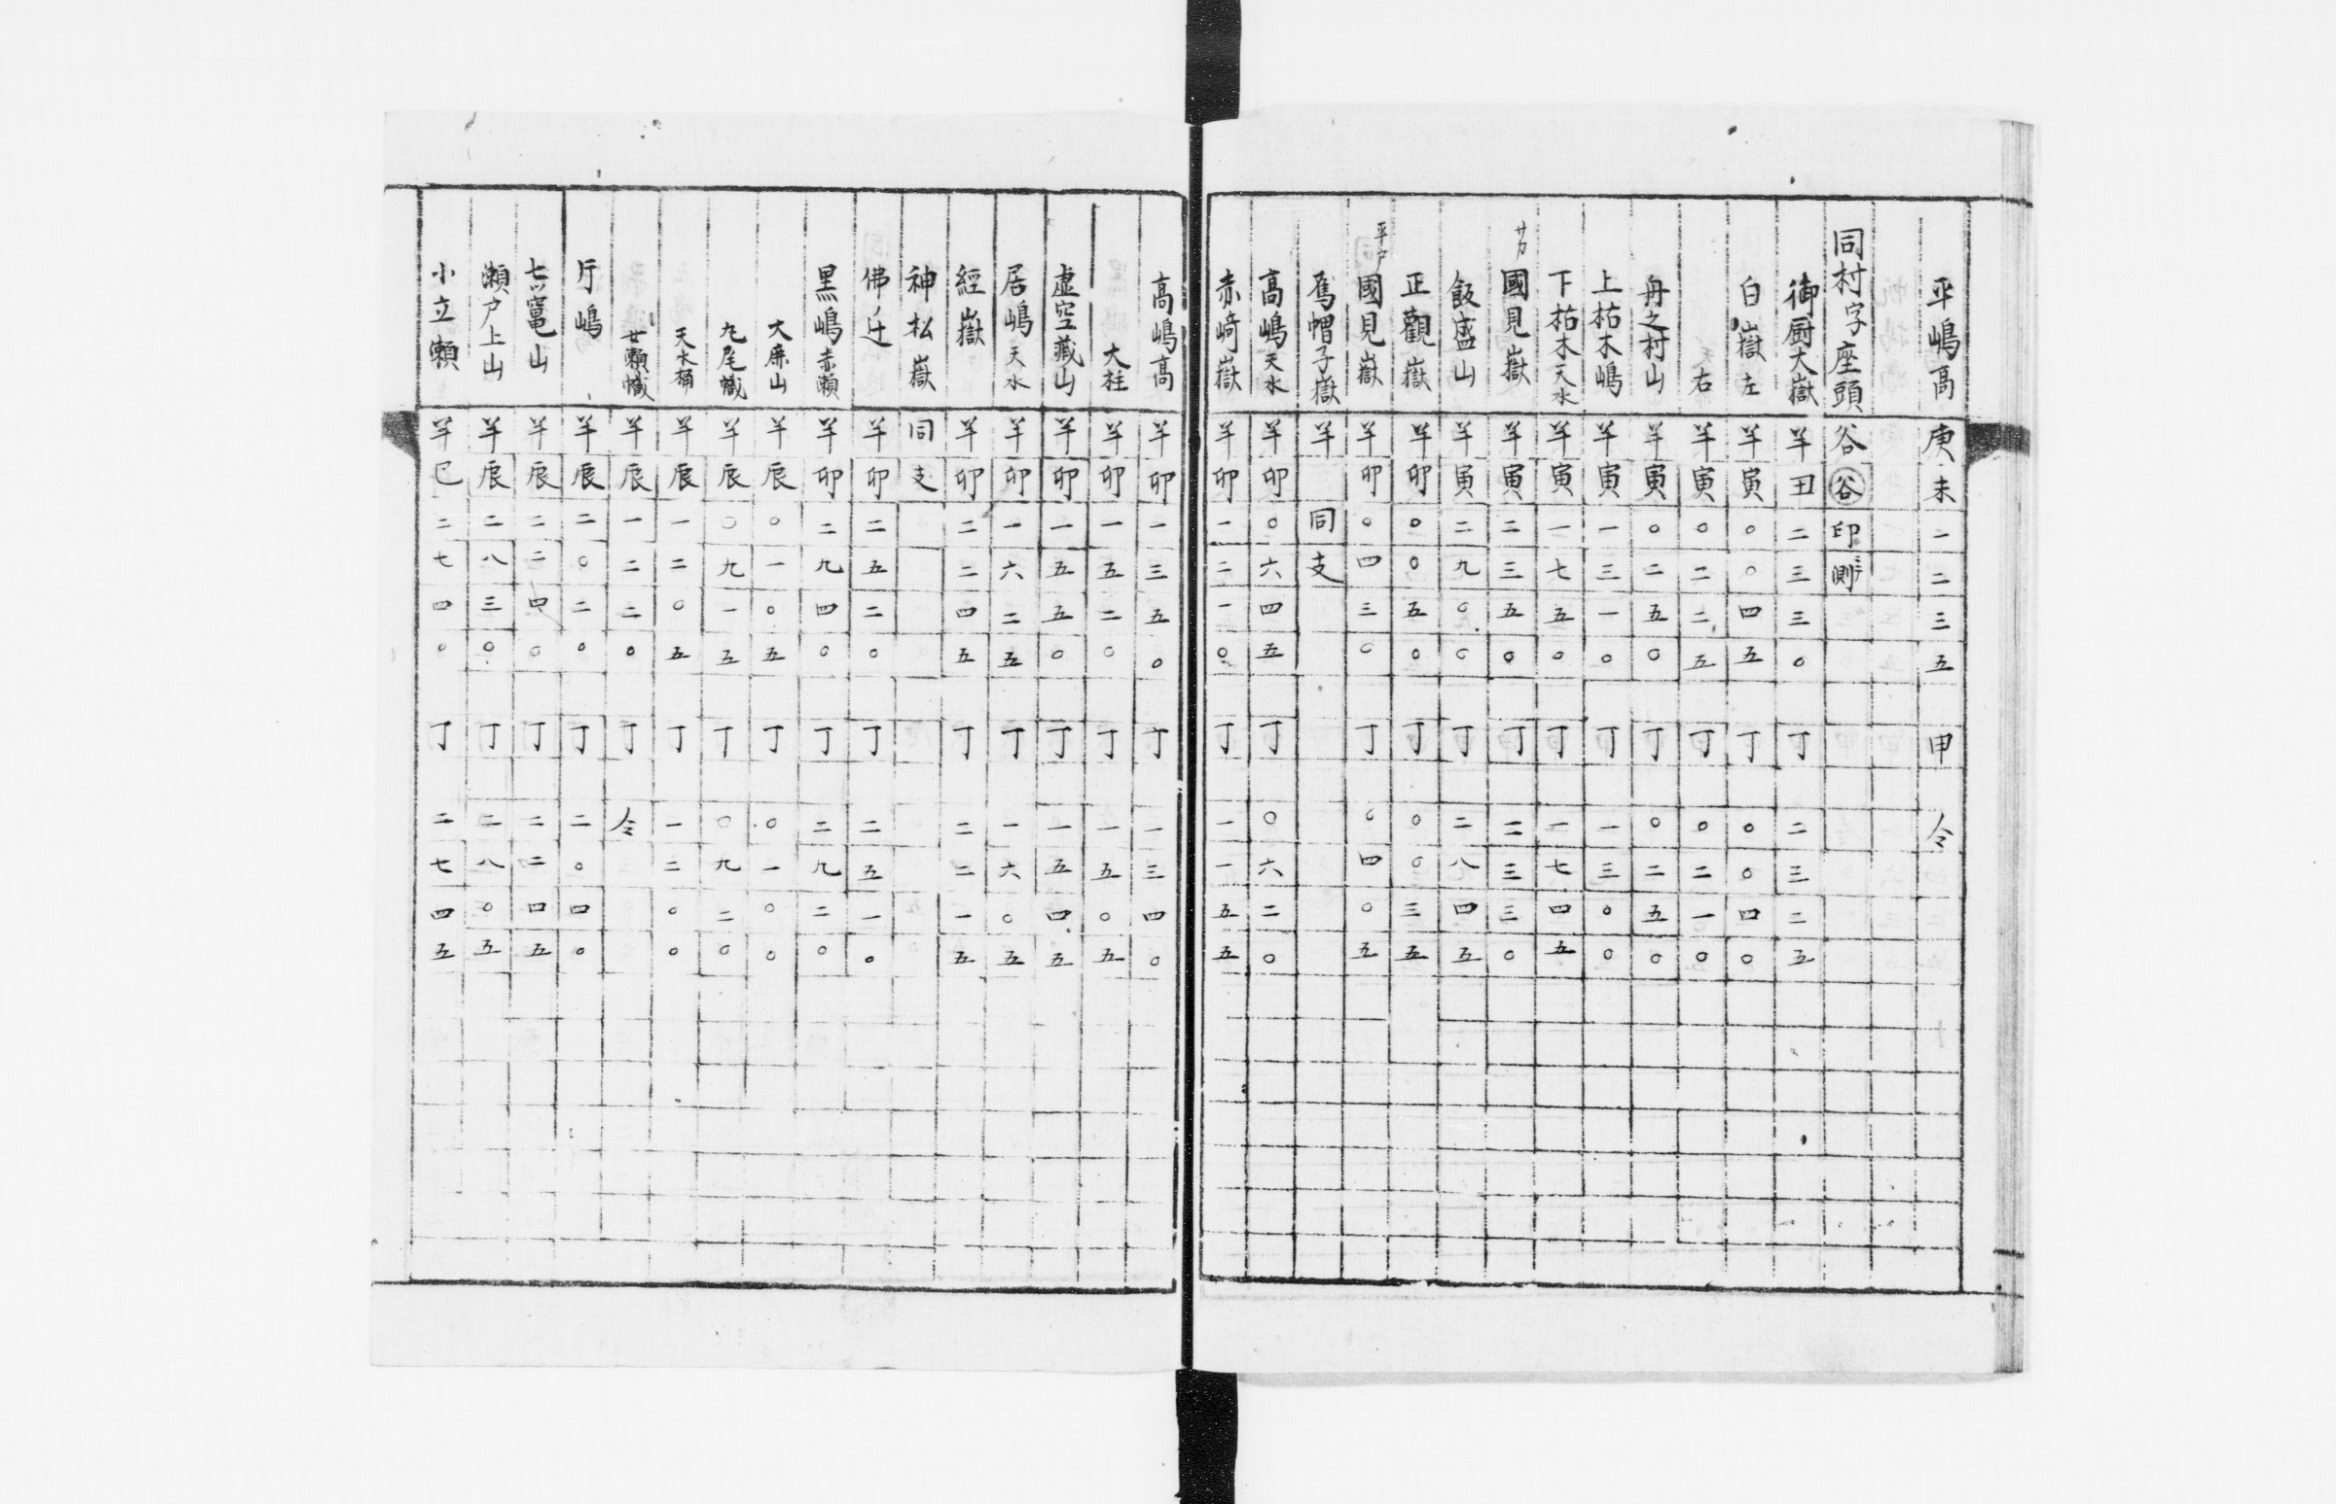 平嶋高 庚未一二三五 甲 仝
同村字座頭谷㊎印ニテ測
御厨大嶽 羊丑二三三〇 丁 二三二五
白嶽左 羊寅〇〇四五 丁 〇〇四〇
右 羊寅〇二二五 丁 〇二一〇
舟之村山 羊寅〇二五〇 丁 〇二五〇
上枯木嶋 羊寅一三一〇 丁 一三〇〇
下枯木天水 羊寅一七五〇 丁 一七四五
サカ國見嶽 羊寅二三五〇 丁 二三三〇
飯盛山 羊寅二九〇〇 丁 二八四五
正觀嶽 羊卯〇〇五〇 丁 〇〇三五
平戸國見嶽 羊卯〇四三〇 丁 〇四〇五
烏帽子嶽 羊 同支
高嶋天水 羊卯〇六四五 丁 〇六二〇
赤﨑嶽 羊卯一二一〇 丁 一一五五
高嶋高 羊卯一三五〇 丁 一三四〇
大柱 羊卯一五二〇 丁 一五〇五
虚空藏山 羊卯一五五〇 丁 一五四五
居嶋天水 羊卯一六二五 丁 一六〇五
經嶽 羊卯二二四五 丁 二二一五
神松嶽 同支
佛ノ辻 羊卯二五二〇 丁 二五一〇
黒嶋赤瀬 羊卯二九四〇 丁 二九二〇
大山 羊辰〇一〇五 丁 〇一〇〇
九尾幟 羊辰〇九一五 丁 〇九二〇
天水桶 羊辰一二〇五 丁 一二〇〇
女瀬幟 羊辰一二二〇 丁 仝
片嶋 羊辰二〇二〇 丁 二〇四〇
七ツ竃山 羊辰二二四〇 丁 二二四五
瀬戸上山 羊辰二八三〇 丁 二八〇五
小立瀬 羊巳二七四〇 丁 二七四五